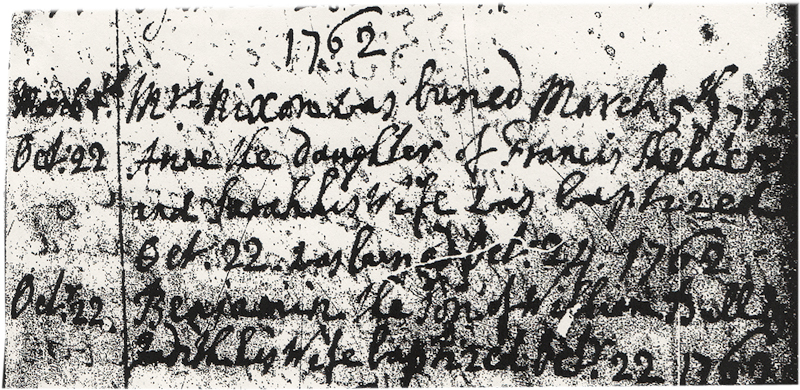 1762
March Mrs Nixon was buried March 5th 1762
Oct. 22 Anne the daughter of Francis
and Sarah his Wife was baptized
Oct. 22. was born Oct. 21. 1762
Oct. 22. Benjamin the Son of William
his Wife baptized Octr. 22 1762